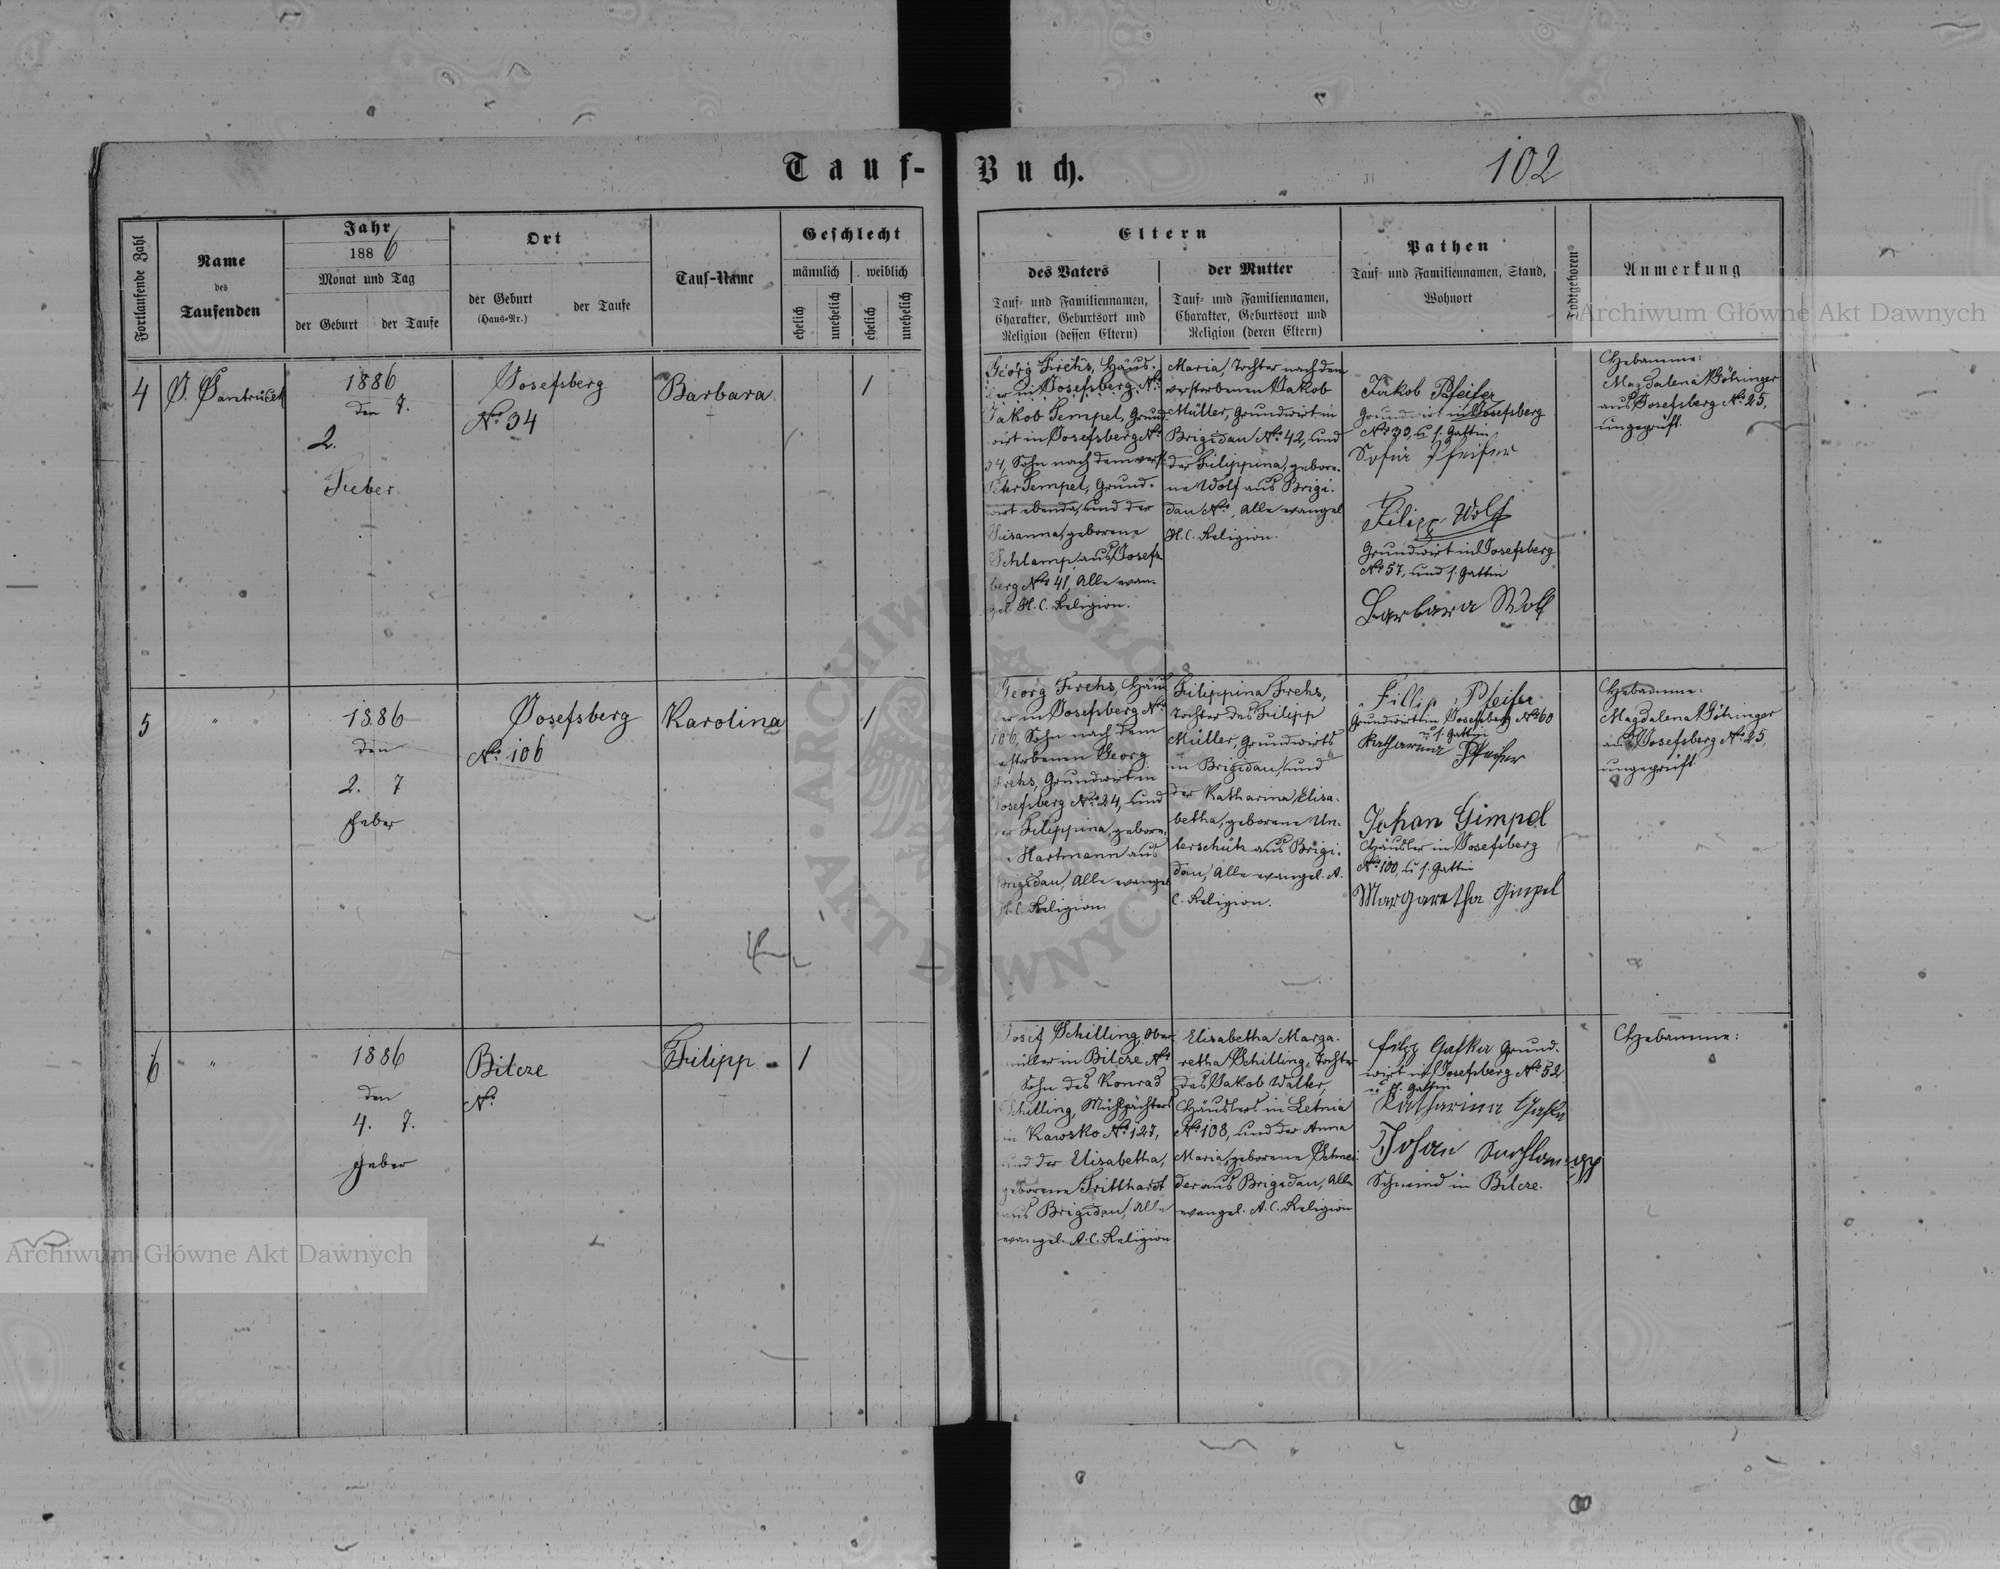 Tauf-Buch.
102
Fortlaufende Zahl
Name
des
Taufenden
Jahr
1886
Monat und Tag
der Geburt
der Taufe
Ort
der Geburt
(Haus-Nr.)
der Taufe
Tauf-Name
Geschlecht
männlich
weiblich
ehelich
unehelich
ehelich
unehelich
Eltern
des Vaters
Tauf- und Familiennamen,
Charakter, Geburtsort und
Religion (dessen Eltern)
der Mutter
Tauf- und Familiennamen,
Charakter, Geburtsort und
Religion (deren Eltern)
Pathen
Tauf- und Familiennamen, Stand,
Wohnort
Todtgeboren
Anmerkung
4
1886
den 7.
2.
Feber
Josefsberg
No 34
Barbara
1
Georg Frehs, Häus-
ler in Josefsberg No
Jakob Tempel, Grund
wirt in Josefsberg No
34, Sohn nach dem verst.
Peter Tempel, Grund-
wirt ebenda, und der
Susanna, geborene
Schlamp, aus Josefs
berg No 41, Alle evan-
gel. H. C. Religion.
Maria, Tochter nach dem
verstorbenen Jakob
Müller, Grundwirt in
Brigidau No 42, und
der Filippina, gebore-
ne Wolf aus Brigi-
dau No, Alle evangel
H. C. Religion.
Jakob Pfeifer
Grundwirt in Josefsberg
No 39, u. s. Gattin
Sofia Pfeifer
Filipp Wolf
Grundwirt in Josefsberg
No 57, und s. Gattin
Barbara Wolf
Hebamme:
Magdalena Göhringer
aus Josefsberg No 25,
ungeprüft.
5
"
1886
den
2. 7
Feber
Josefsberg
No 106
Karolina
1
Georg Frehs, Häus
er in Josefsberg No
106, Sohn nach dem
verstorbenen Georg
Frehs, Grundwirt in
Josefsberg No 24, und
er Filippina, gebore.
Hartmann aus
Brigidau, Alle evangel
H. C. Religion
Filippina Frehs,
Tochter des Filipp
Müller, Grundwirts
in Brigidau, und
der Katharina Elisa-
betha, geborene Un-
terschütz aus Brigi-
dau, Alle evangel. A.
C. Religion.
Fillip Pfeifer
Grundwirt in Josefsberg No 60
u s. Gattin
Katharina Pfeifer
Johan Gimpel
Häusler in Josefsberg
No 100, u s. Gattin
Margaretha Gimpel
Hebamme:
Magdalena Göhringer
aus Josefsberg No 25,
ungeprüft
6
"
1886
den
4. 7.
Feber
Bilcze
No
Filipp
1
Josef Schilling, Ober
müller in Bilcze No
Sohn des Konrad
Schilling, Mühlpächters
in Kawsko No 127,
und der Elisabetha,
geborene Tritthardt
aus Brigidau, Alle
evangel. A. C. Religion
Elisabetha Marga-
retha Schilling, Tochter
des Jakob Walter,
Häuslers in Letnia
No 108, und der Anna
Maria, geborene Schnei
der aus Brigidau, Alle
evangel. A. C. Religion
Filipp Gafka Grund-
wirt in Josefsberg No 52
u. s. Gattin
Katharina Gafka
Johan
Schmied in Bilcze.
Hebamme:
Archiwum Główne Akt Dawnych
Archiwum Główne Akt Dawnych
ARCHIWUM GŁÓWNE AKT DAWNYCH